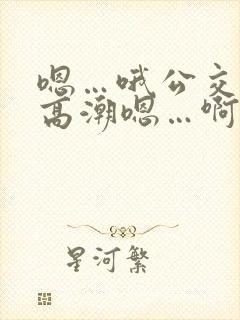 嗯…哦公交
高潮嗯…啊
星河繁